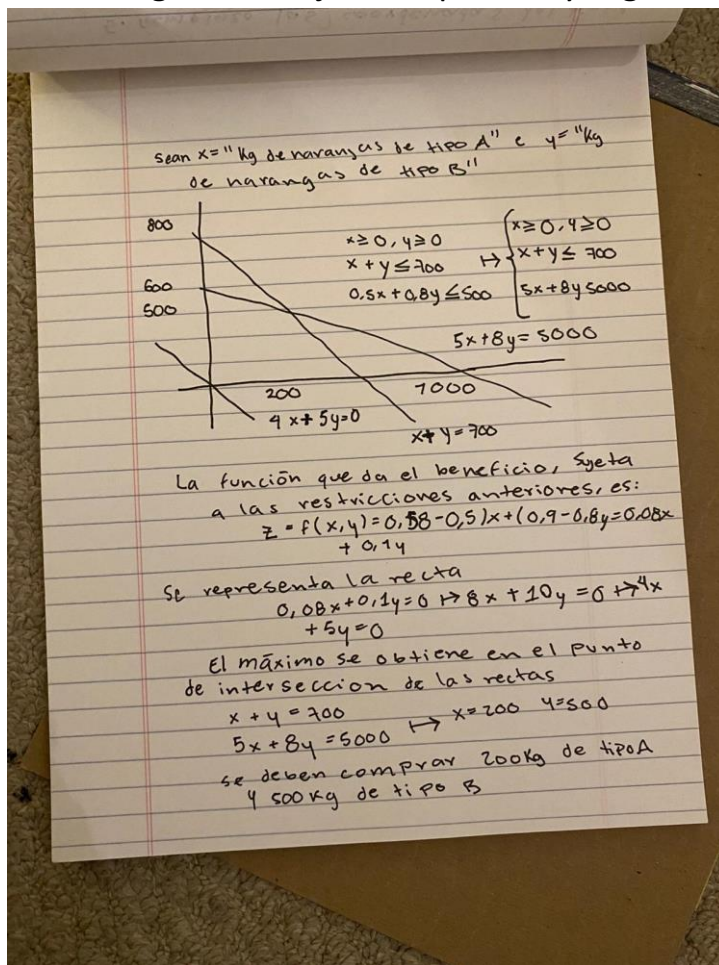 sean x="Kg de naranjas de tipo A" e y="Kg
de narangas de tipo B"
800
600
500
x≥0, y≥0
x+y≤700
0,5x+0,8y≤500
↦
x≥0, y≥0
x+y≤700
5x+8y 5000
5x+8y=5000
200
7000
4x+5y=0
x+y=700
La función que da el beneficio, sujeta
a las restricciones anteriores, es:
z=f(x,y)=0,58-0,5)x+(0,9-0,8y=0,08x
+0,1y
Se representa la recta
0,08x+0,1y=0 ↦ 8x+10y=0 ↦ 4x
+5y=0
El máximo se obtiene en el punto
de interseccion de las rectas
x+y=700
5x+8y=5000 ↦ x=200 y=500
se deben comprar 200Kg de tipo A
y 500 Kg de tipo B